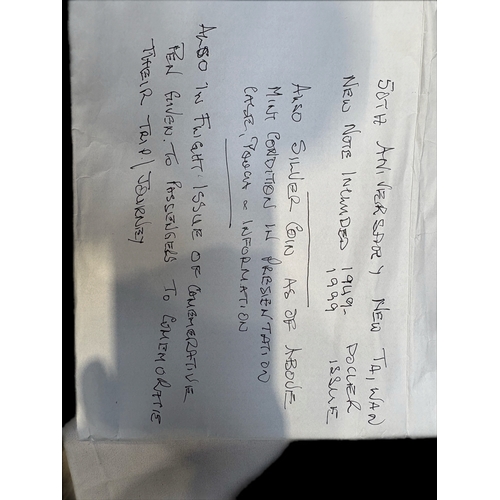 50TH ANIVERSARY NEW TA,WAN
NEW NOTE INCLUDED 1949- DOLLER
1999 ISSUE
ALSO SILVER COIN AS OF ABOVE
MINT CONDITION IN PRESENTATION
CASE, POUCH & INFORMATION
ALSO IN FLIGHT ISSUE OF COMEMERATIVE
PEN GIVEN TO PASSENGERS TO COMEMORATE
THEIR TRIP/JOURNEY